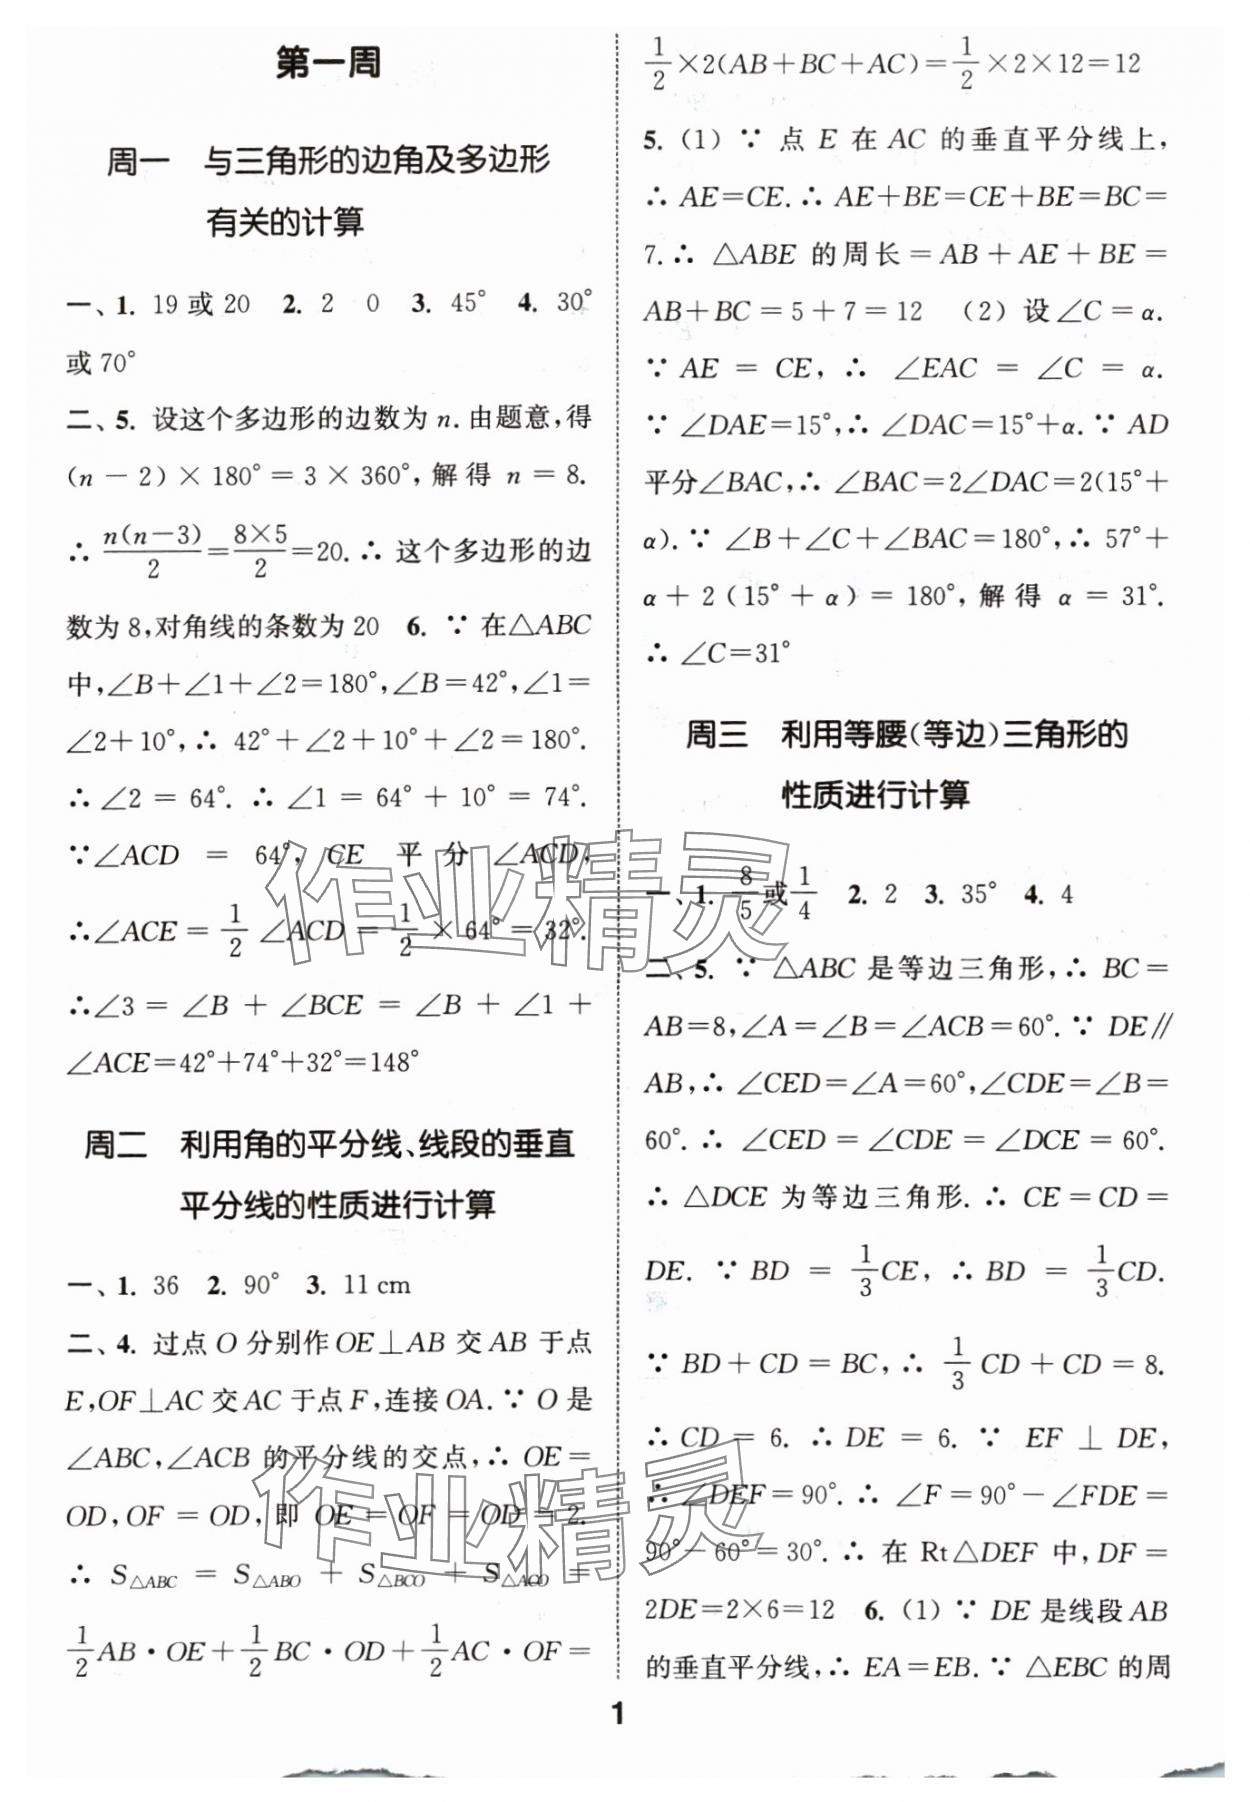 第一周
周一 与三角形的边角及多边形
有关的计算
一、1. 19或20 2. 2 0 3. 45° 4. 30°
或70°
二、5. 设这个多边形的边数为n.由题意,得
(n－2)×180°=3×360°,解得 n=8.
∴ n(n－3)/2=8×5/2=20.∴ 这个多边形的边
数为8,对角线的条数为20 6. ∵ 在△ABC
中,∠B+∠1+∠2=180°,∠B=42°,∠1=
∠2+10°,∴ 42°+∠2+10°+∠2=180°.
∴∠2=64°.∴∠1=64°+10°=74°.
∵∠ACD=64°,CE平分∠ACD,
∴∠ACE=1/2∠ACD=1/2×64°=32°.
∴∠3=∠B+∠BCE=∠B+∠1+
∠ACE=42°+74°+32°=148°
周二 利用角的平分线、线段的垂直
平分线的性质进行计算
一、1. 36 2. 90° 3. 11 cm
二、4. 过点O分别作OE⊥AB交AB于点
E,OF⊥AC交AC于点F,连接OA.∵ O是
∠ABC,∠ACB的平分线的交点,∴ OE=
OD,OF=OD,即 OE=OF=OD=2.
∴ S△ABC=S△ABO+S△BCO+S△ACO=
1/2AB·OE+1/2BC·OD+1/2AC·OF=
1/2×2(AB+BC+AC)=1/2×2×12=12
5. (1) ∵ 点E在AC的垂直平分线上,
∴ AE=CE.∴ AE+BE=CE+BE=BC=
7.∴ △ABE的周长=AB+AE+BE=
AB+BC=5+7=12 (2) 设∠C=α.
∵ AE=CE,∴ ∠EAC=∠C=α.
∵ ∠DAE=15°,∴ ∠DAC=15°+α.∵ AD
平分∠BAC,∴ ∠BAC=2∠DAC=2(15°+
α).∵ ∠B+∠C+∠BAC=180°,∴ 57°+
α+2(15°+α)=180°,解得 α=31°.
∴ ∠C=31°
周三 利用等腰(等边)三角形的
性质进行计算
一、1. 8/5或1/4 2. 2 3. 35° 4. 4
二、5. ∵ △ABC是等边三角形,∴ BC=
AB=8,∠A=∠B=∠ACB=60°.∵ DE∥
AB,∴ ∠CED=∠A=60°,∠CDE=∠B=
60°.∴ ∠CED=∠CDE=∠DCE=60°.
∴ △DCE为等边三角形.∴ CE=CD=
DE.∵ BD=1/3CE,∴ BD=1/3CD.
∵ BD+CD=BC,∴ 1/3CD+CD=8.
∴ CD=6.∴ DE=6.∵ EF⊥DE,
∴ ∠DEF=90°.∴ ∠F=90°－∠FDE=
90°－60°=30°.∴ 在Rt△DEF中,DF=
2DE=2×6=12 6. (1) ∵ DE是线段AB
的垂直平分线,∴ EA=EB.∵ △EBC的周
1
作业精灵
作业精灵